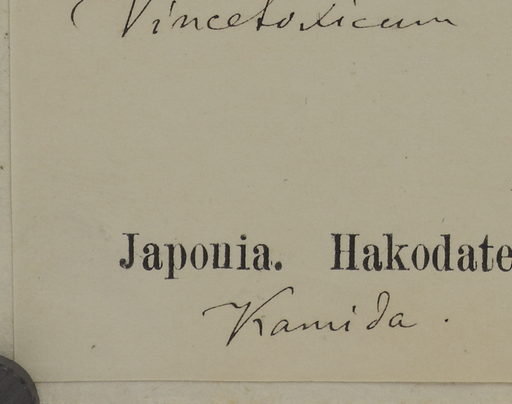 (Vincetoxicum
Japonia. Hakodate
Kamida.